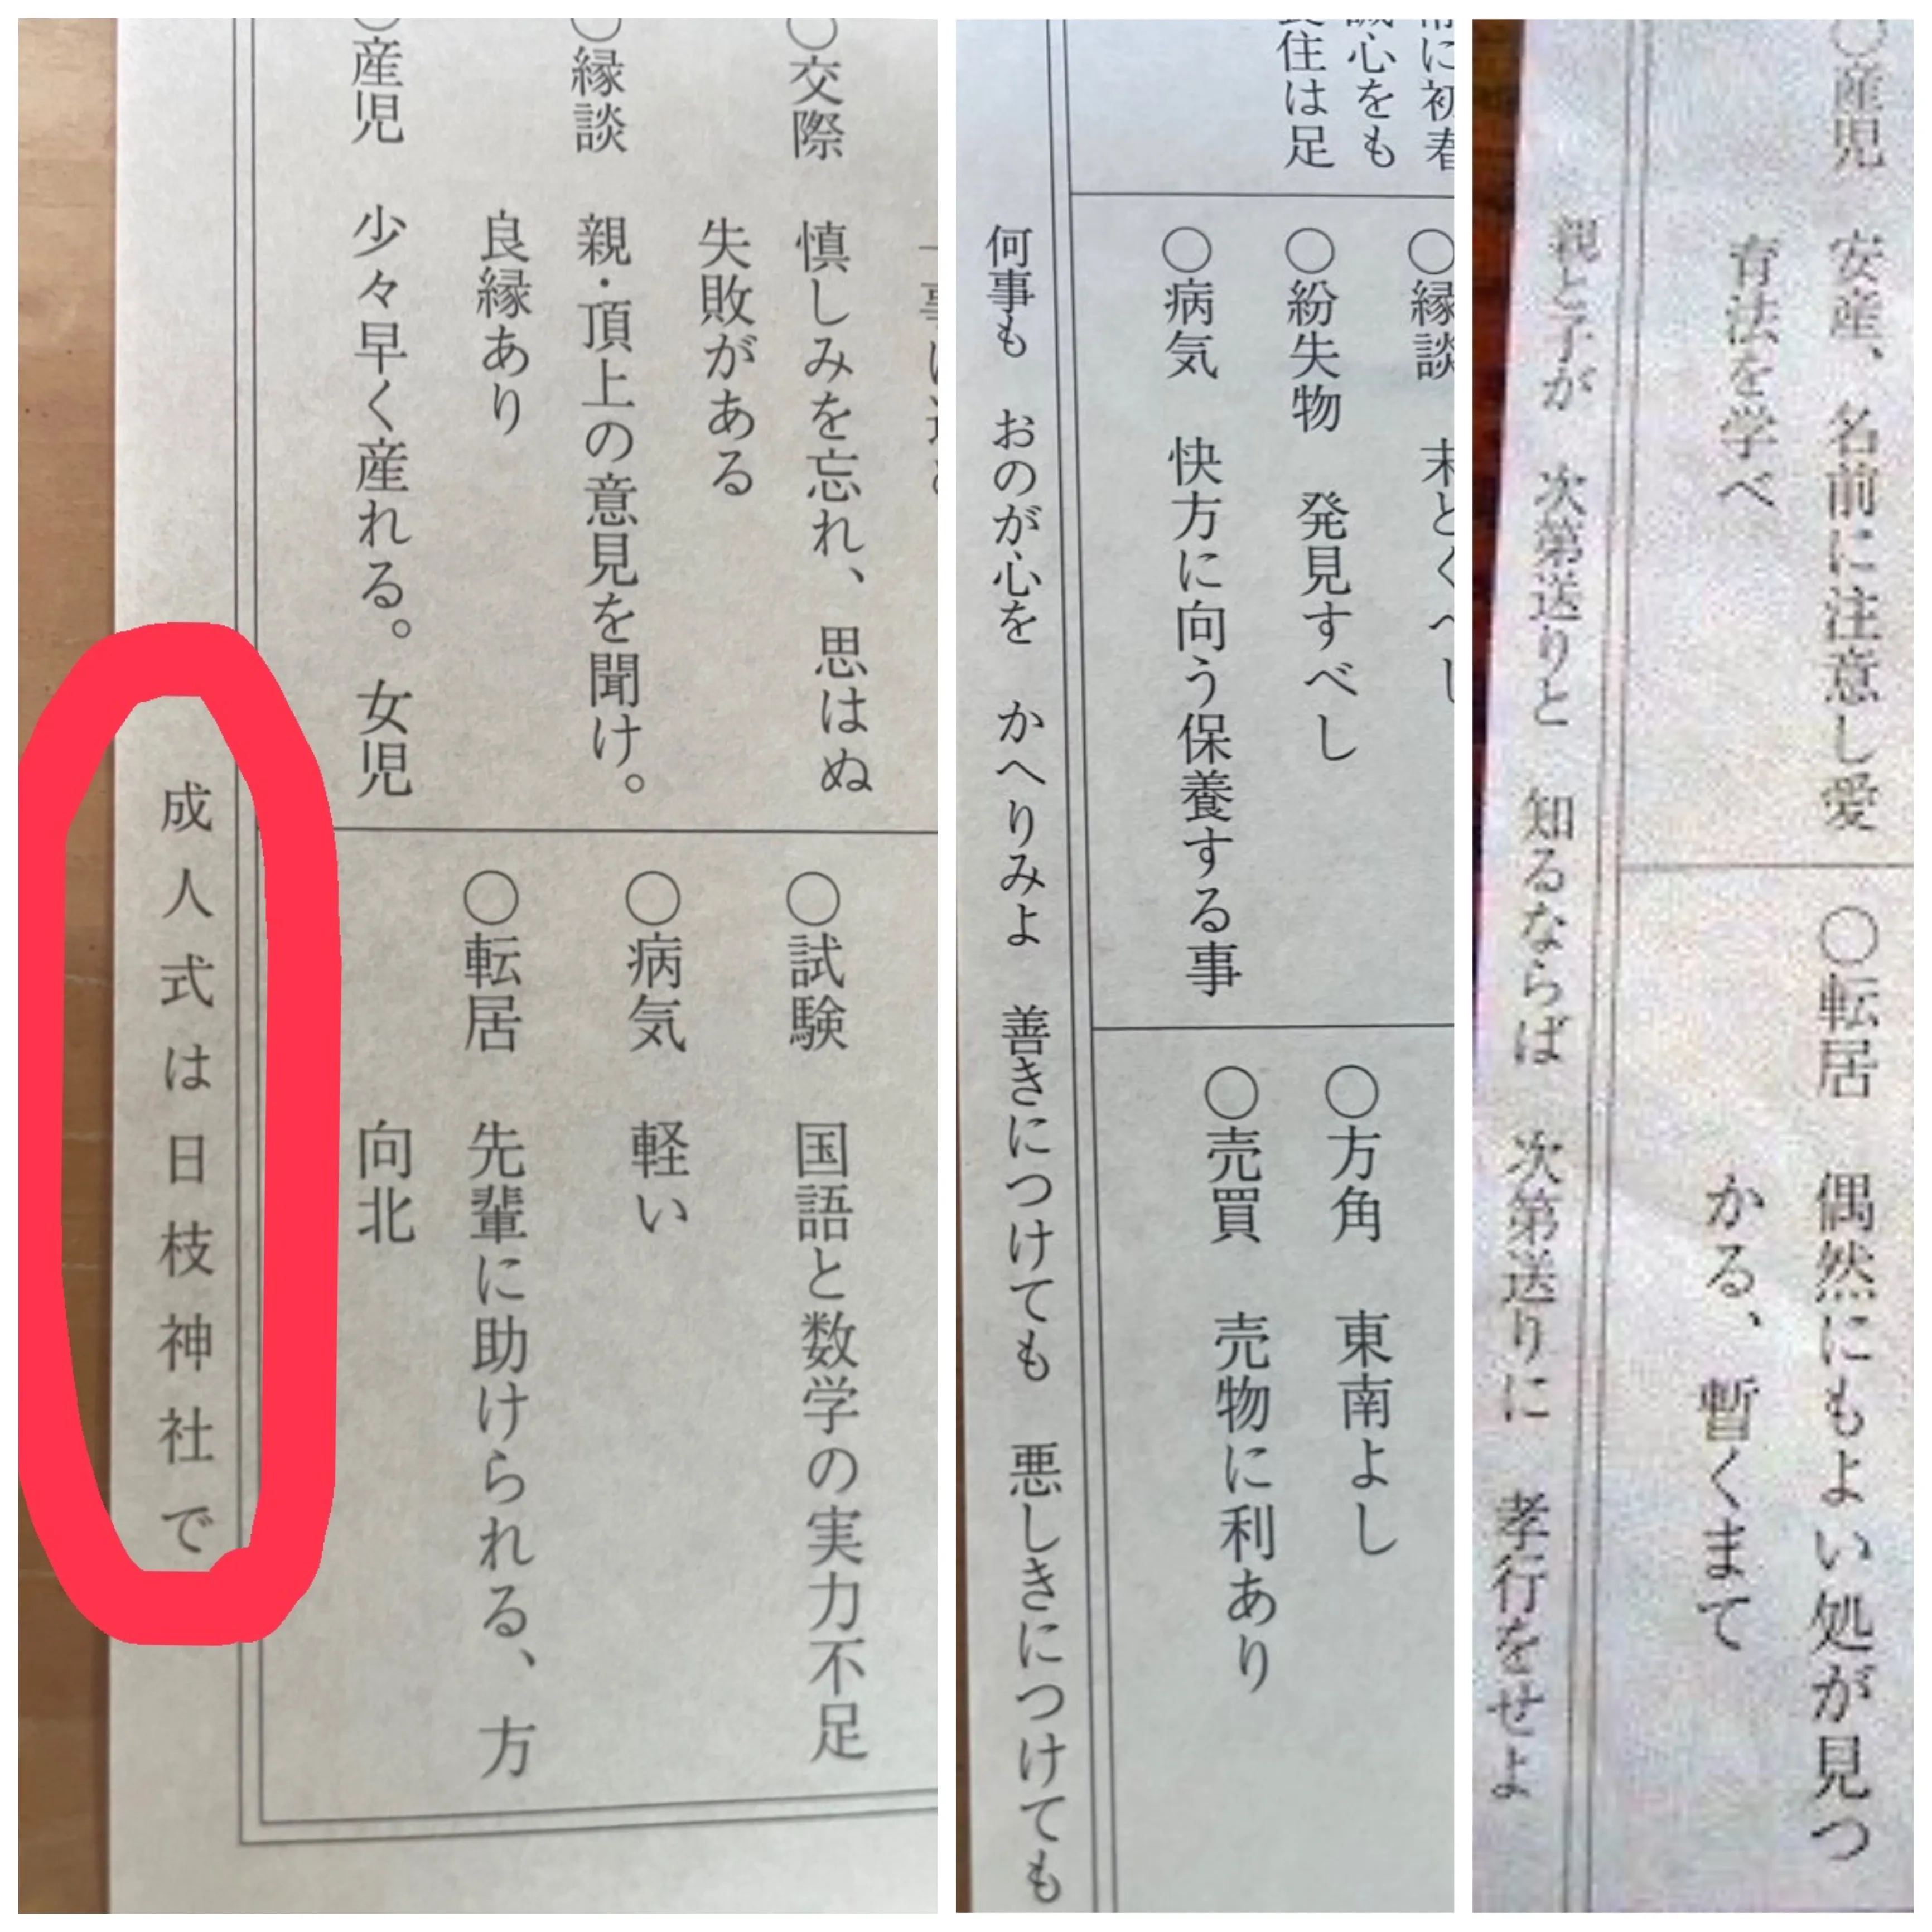 ○交際 慎しみを忘れ、思はぬ
失敗がある
○縁談 親・頂上の意見を聞け。
良縁あり
○産児 少々早く産れる。女児
○試験 国語と数学の実力不足
○病気 軽い
○転居 先輩に助けられる、方
向北
成人式は日枝神社で
に初春
誠心をも
衣住は足
○縁談 末とくべし
○紛失物 発見すべし
○病気 快方に向う保養する事
○方角 東南よし
○売買 売物に利あり
何事も おのが心を かへりみよ 善きにつけても 悪しきにつけても
○産児 安産、名前に注意し愛
育法を学べ
○転居 偶然にもよい処が見つ
かる、暫くまて
親と子が 次第送りと 知るならば 次第送りに 孝行をせよ